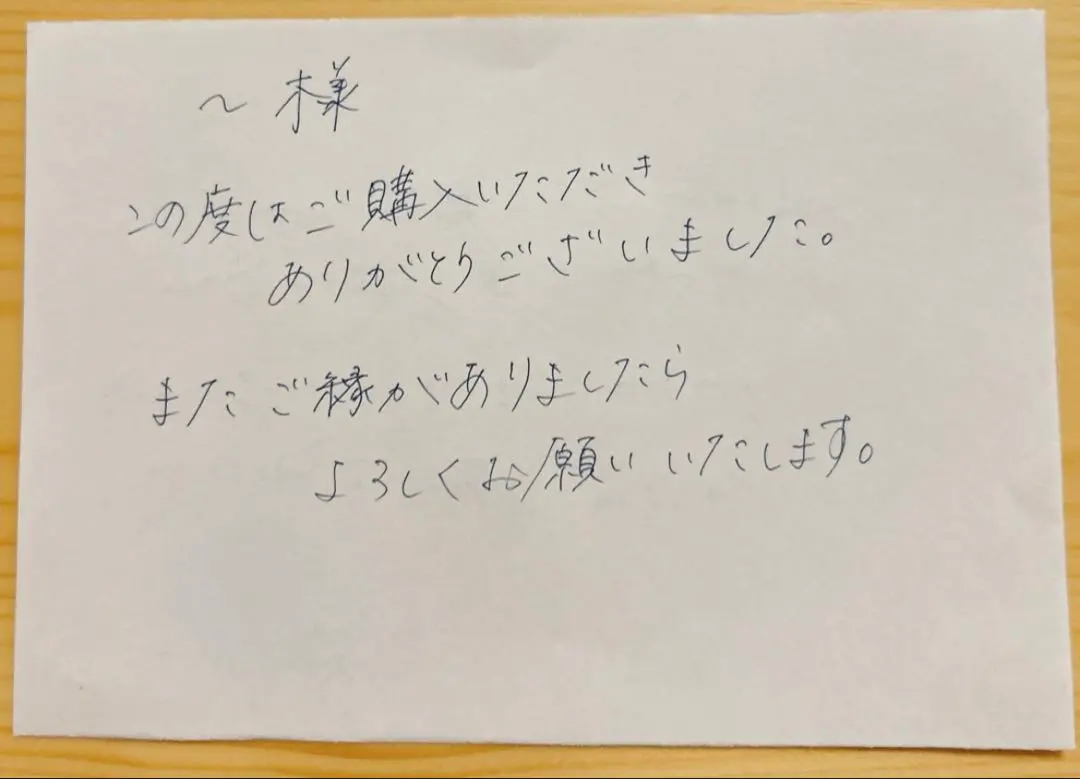 ～様
この度はご購入いただき
ありがとうございました。
またご縁がありましたら
よろしくお願いいたします。